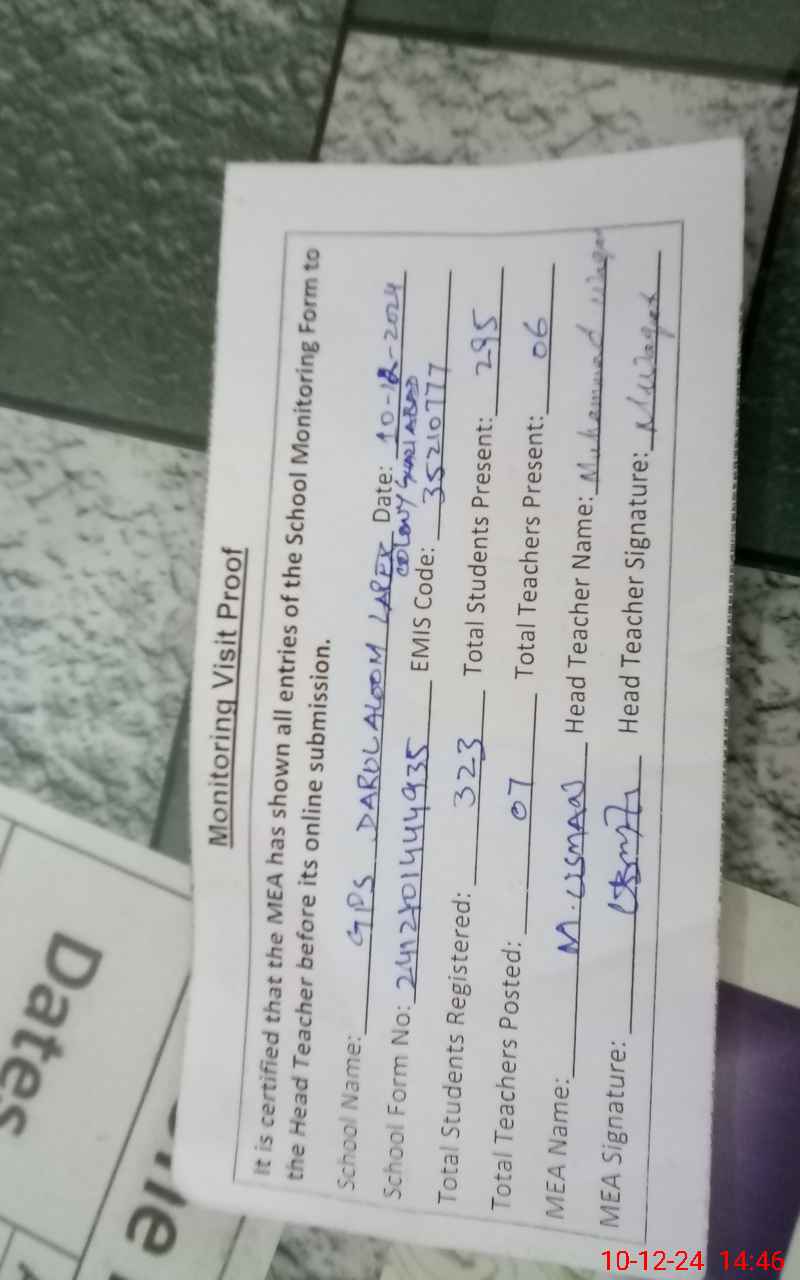 Monitoring Visit Proof
It is certified that the MEA has shown all entries of the School Monitoring Form to
the Head Teacher before its online submission.
School Name: GPS DARUL ALOOM LAREX COLONY GHAZIABAD Date: 10-12-2024
School Form No: EMIS Code: 35210777
Total Students Registered: 323 Total Students Present: 295
Total Teachers Posted: 07 Total Teachers Present: 06
MEA Name: M. USMAAN Head Teacher Name: Muhammad Waqar
MEA Signature: Head Teacher Signature: M Waqar
Dates
10-12-24 14:46